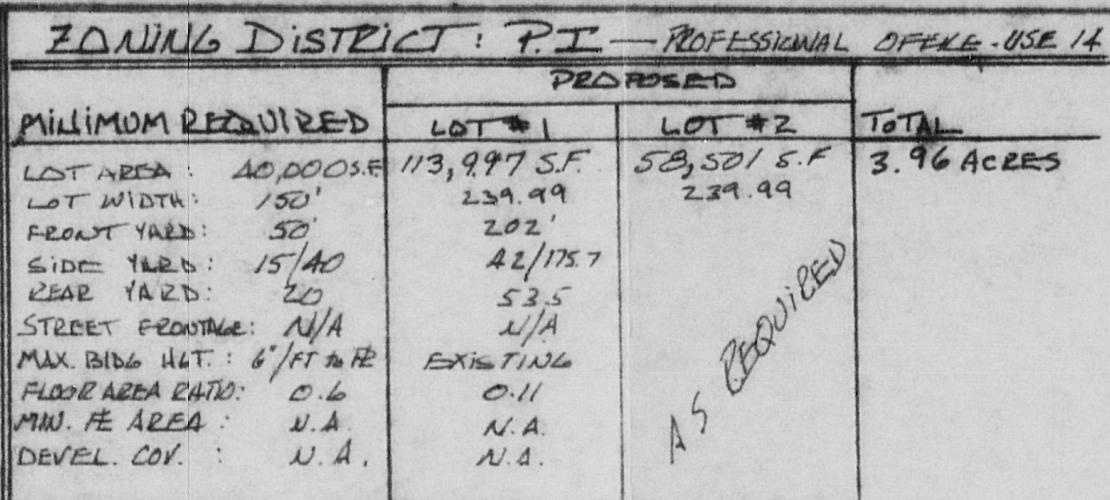 ZONING DISTRICT: P.I — PROFESSIONAL OFFICE - USE 14
PROPOSED
MINIMUM REQUIRED LOT #1 LOT #2 TOTAL
LOT AREA: 40,000 S.F. 113,997 S.F. 58,501 S.F 3.96 ACRES
LOT WIDTH: 150' 239.99 239.99
FRONT YARD: 50' 202'
SIDE YARD: 15/40 42/175.7
REAR YARD: 20 53.5
STREET FRONTAGE: N/A N/A
MAX. BLDG HGT.: 6"/FT to EXISTING
FLOOR AREA RATIO: 0.6 0.11
MIN. AREA: N.A. N.A.
DEVEL. COV. : N.A. N.A.
AS REQUIRED